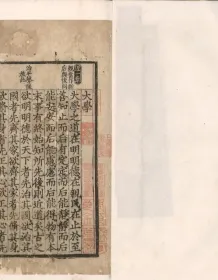 大學
大學之道在明明德在親民在止於至
善知止而后有定定而后能靜靜而后
能安安而后能慮慮而后能得物有本
末事有終始知所先後則近道矣古之
欲明明德於天下者先治其國欲治其
國者先齊其家欲齊其家者先脩其身
欲脩其身者先正其心欲正其心